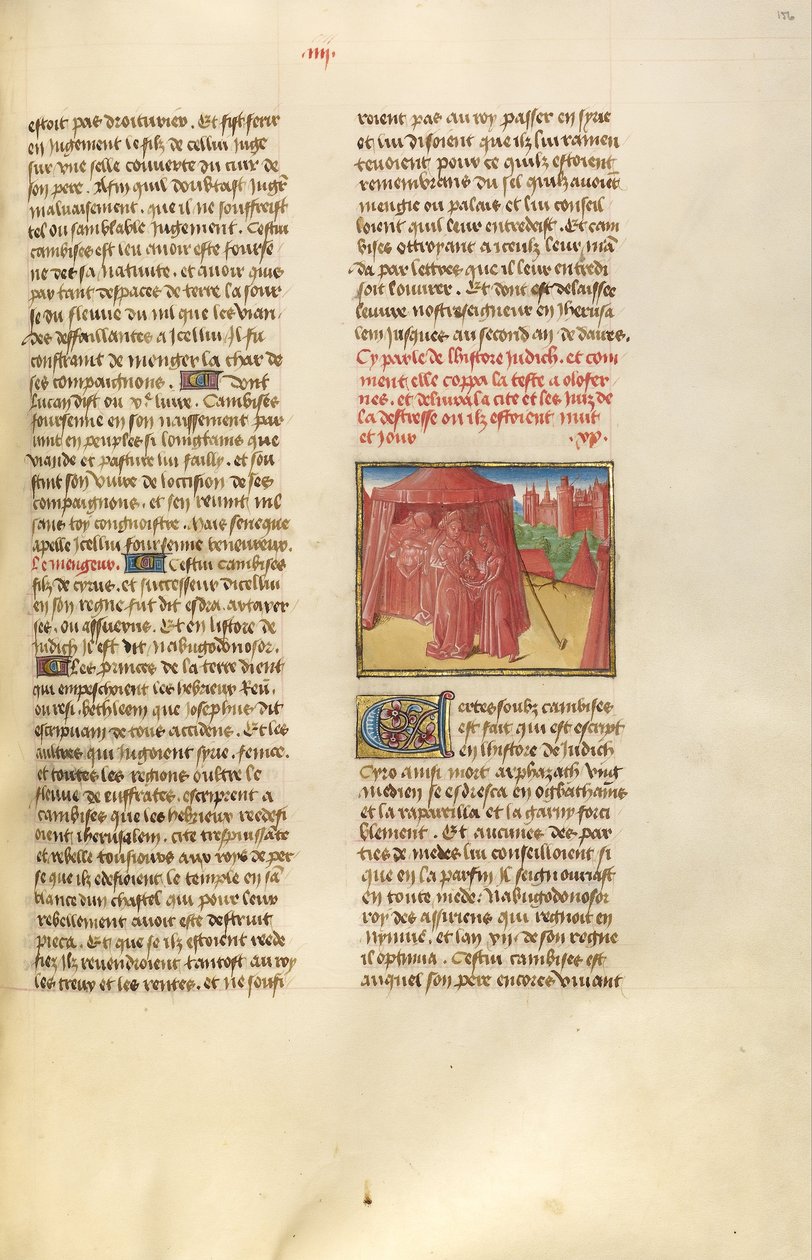 .iiij.
156
estoit pas droiturier. Et fist ferir
en Jugement le filz de cellui Juge
sur vne selle couverte du cuir de
son pere. Afin quil doubtast Jugr̄
maluaisement. que il ne souffreist
tel ou samblable Jugement. Cestui
cambises est leu auoir este fourse
ne des sa natiuite. et auoir quis
par tant despaces de terre la sour
se du fleuue du nil que les vian
des deffaillantes a Jcellui Jl fu
constraint de menger la char de
ses compaignons. dont
lucan dist ou vᵉ liure. Cambises
foursenne en son naissement par
uint en peuples si loingtains que
viande et pasture lui failly. et sou
stint son viure de loccision de ses
compaignons. et sen reuint nil
sans toy congnoistre. Mais seneque
apelle Jcellui foursenne beneureux.
Le mengeur. Cestui cambises
filz de cyrus. et successeur dicellui
en son regne fut dit esdra. artaxer
ses. ou assuerus. Et en listore de
Judich Jl est dit nabugodonosor.
Les princes de la terre dient
qui empeschoient les hebrieux
que Josephus dit
escripuam de tous accidens. Et les
aultres qui Jugoient syrie. fenice.
et toutes les regions oultre le
fleuue de euffrates. escriprent a
cambises que les hebrieux reedefi
oient iherusalem. cite trespuissāte
et rebelle tousiours aux roys de per
se que ilz edefioient le temple en sā
blance dun chastel qui pour leur
rebellement auoit este destruit
pieca. Et que se ilz estoient reede
fiez Ilz revendroient tantost au roy
les treux et les rentes. et ne soufi
roient pas au roy passer en syrie
et lui disoient que ilz lui ramen
teuoient pour ce quilz estoient
remembrans du sel quilz auoiēt
mengie ou palais et lui conseil
loient quil leur entredeist. Et cam
bises ottroyant a iceulz leur mā
da par lettres que il leur entredi
soit louurer. Et dont est delaissee
leuure nostreseigneur en Jherusa
lem Jusques au second an de daires.
Cy parle de lhistore Judich. et com
ment elle coppa la teste a olofer
nes. et deliura la cite et les Juiz de
la destresse ou ilz estoient nuit
et Jour .xv.
Certes soubz cambises
est fait qui est escript
en lhistore de Judich
Cyro ainsi mort arphazath
medien se esdresca en
et la rapareilla et la garny forci
blement. Et aucunes des par
ties de medes lui conseilloient si
que en la parfin Jl seignouriast
en toute mede. Nabugodonosor
roy des assiriens qui regnoit en
Nyniue. et lan xij. de son regne
il optinua. Cestui cambises est
auquel son pere encores viuant